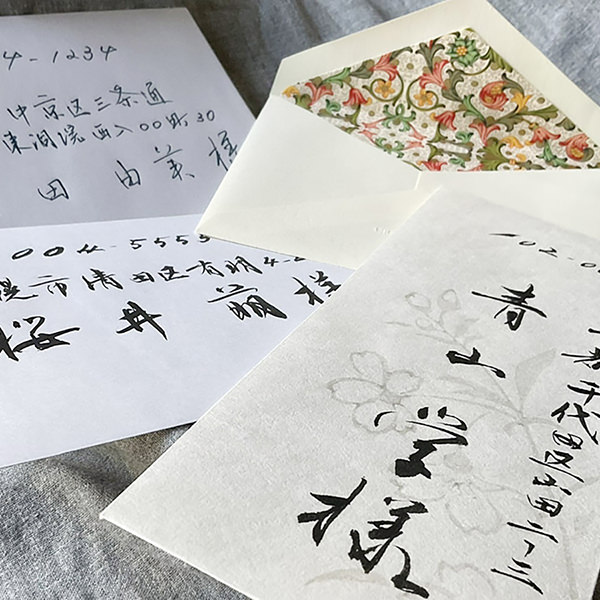 4-1234
中京区三条通
東洞院西入00町30
田 由美 様
004-5553
幌市清田区有明4-2
桜井 萌 様
102-0
千代田区 田二ノ三
青山 様